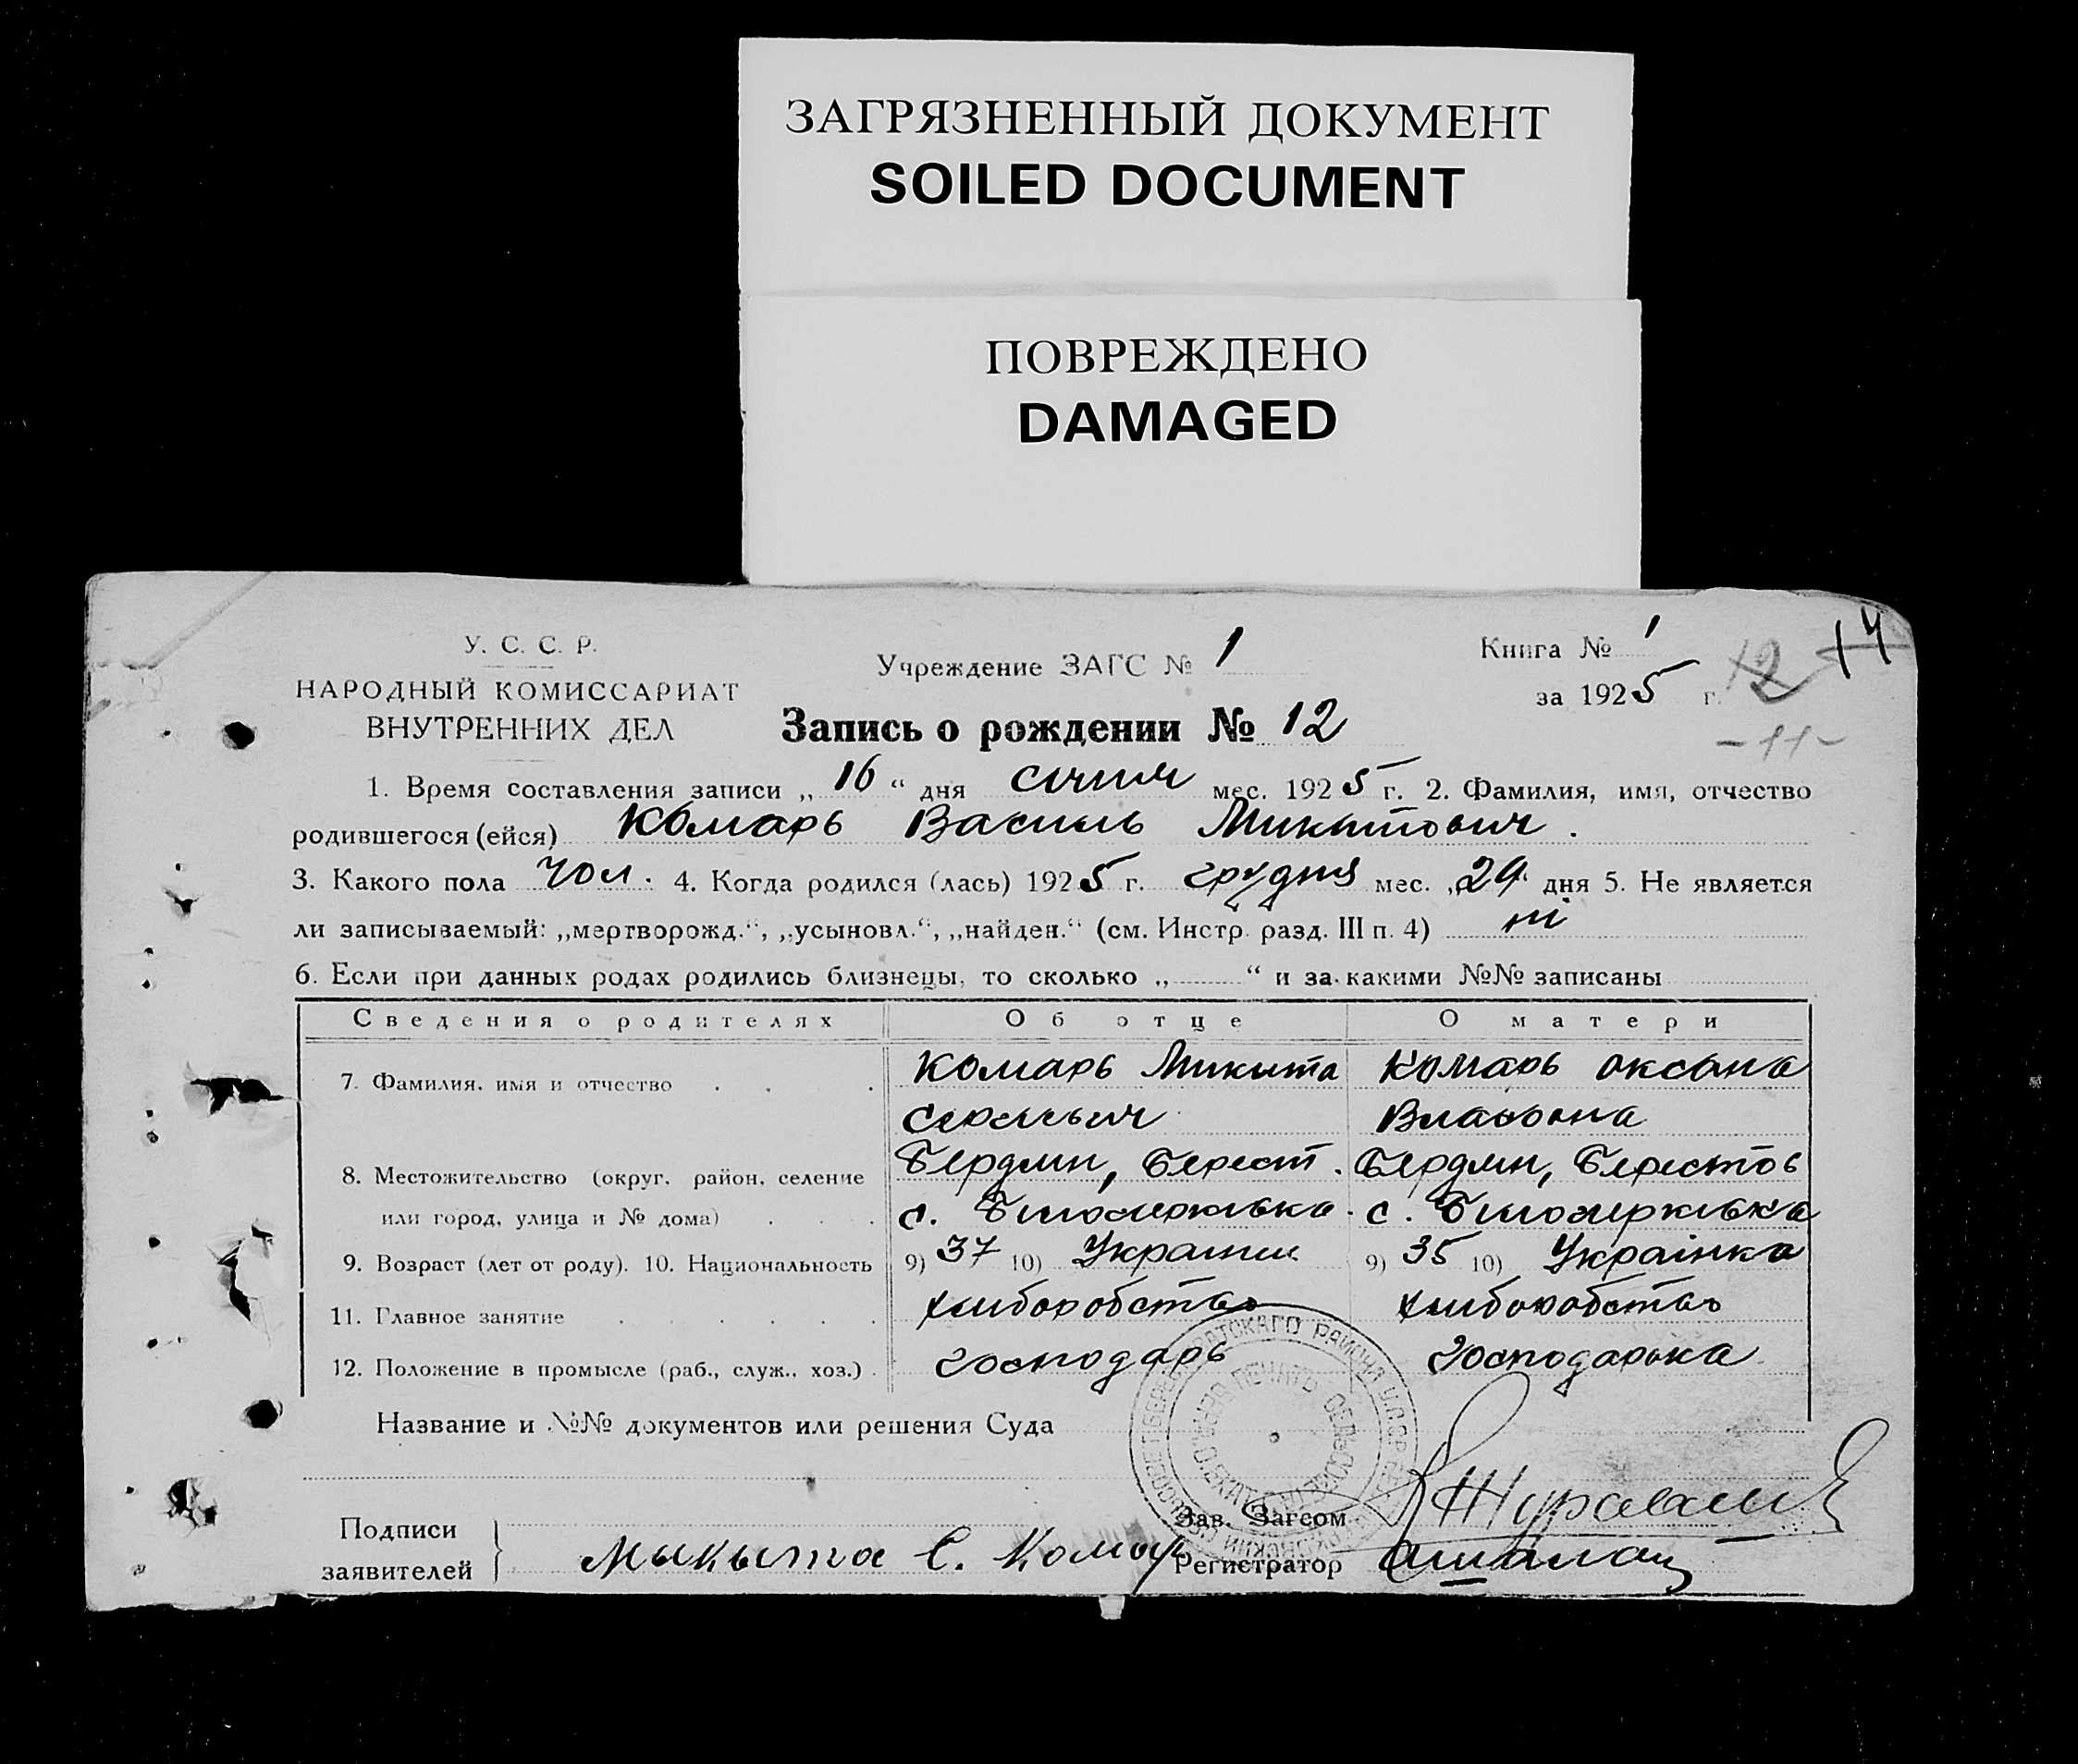 ЗАГРЯЗНЕННЫЙ ДОКУМЕНТ
SOILED DOCUMENT
ПОВРЕЖДЕНО
DAMAGED
У. С. С. Р.
НАРОДНЫЙ КОМИССАРИАТ
ВНУТРЕННИХ ДЕЛ
Учреждение ЗАГС № 1
Книга № 1
за 1925 г.
12 14
-11-
Запись о рождении № 12
1. Время составления записи „ 16 “ дня січня мес. 1925 г. 2. Фамилия, имя, отчество
родившегося (ейся) Комарь Василь Микытович.
3. Какого пола чол. 4. Когда родился (лась) 1925 г. грудня мес. „29“ дня 5. Не является
ли записываемый: „мертворожд.“, „усыновл.“, „найден.“ (см. Инстр. разд. III п. 4) ні
6. Если при данных родах родились близнецы, то сколько „ “ и за какими №№ записаны
Сведения о родителях Об отце О матери
7. Фамилия, имя и отчество Комарь Микыта Комарь Оксана
Власовна
8. Местожительство (округ, район, селение Бердян, Берест. Бердян, Берестов
или город, улица и № дома) с. с.
9. Возраст (лет от роду). 10. Национальность 9) 37 10) Украінец 9) 35 10) Украінка
11. Главное занятие хлиборобство хлиборобство
12. Положение в промысле (раб., служ., хоз.) господарь господарька
Название и №№ документов или решения Суда
Подписи
заявителей
Мыкыта С. Комарь
Зав. Загсом
Регистратор